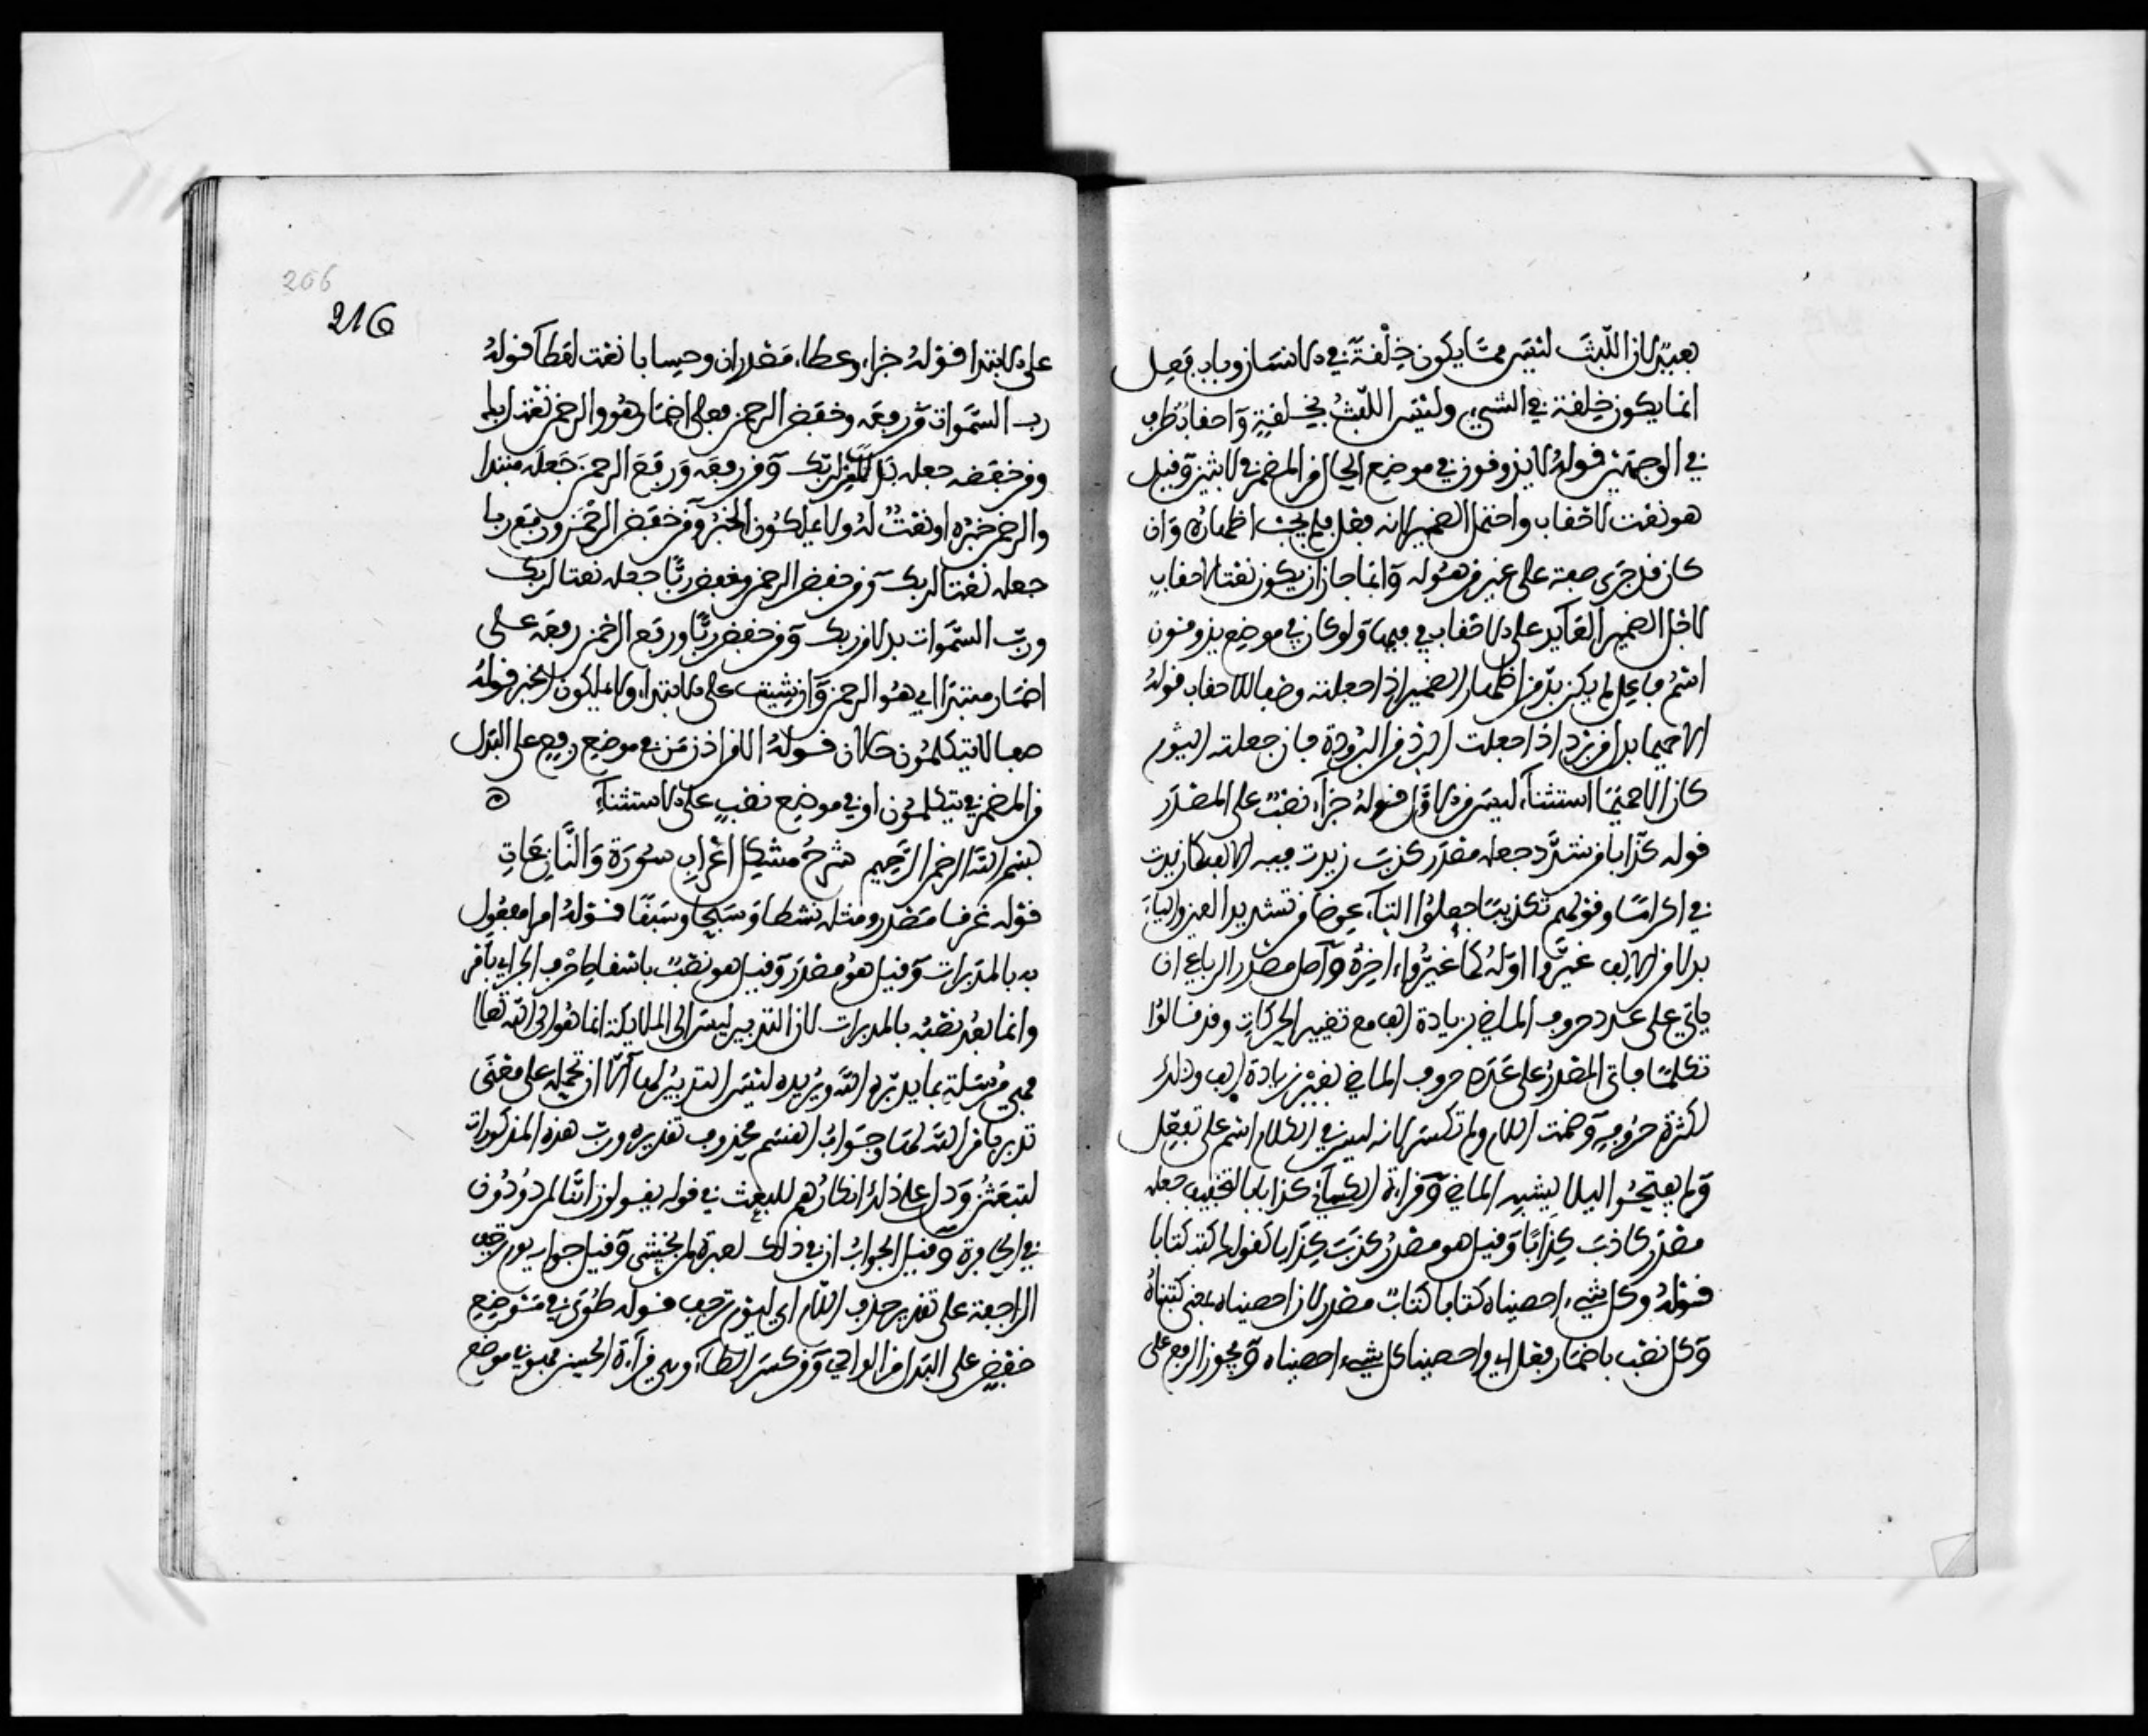 بعيد لان اللبث ليس مما يكون خلقة في الانسان وباب فعل
انما يكون خلقة في الشيء وليس اللبث بخلقة واحقابا ظرف
في الوجهين قوله لا يذوقون في موضع الحال من المضمر في لابثين وقيل
هو نعت لاحقاب واحتمل الضمير لانه فعل فلم يجب اظهاره وان
كان قد جرى صفة على غير من هو له وانما جاز ان يكون نعتا لاحقاب
لاجل الضمير العائد على الاحقاب في فيها ولو كان في موضع يذوقون
اسم فاعل لم يكن بد من اظهار الضمير اذا جعلته وصفا للاحقاب قوله
الا حميما بدل من بردا اذا جعلت البرد من البرودة فان جعلته النوم
كان الا حميما استثناء ليس من الاول قوله جزاء نصب على المصدر
قوله كذابا من شدد جعله مصدر كذب زيدت فيه الالف كما زيدت
في اكراما وقولهم تكذيبا جعلوا التاء عوضا من تشديد العين والياء
بدلا من الالف غيروا اوله كما غيروا اخره واصل مصدر الرباعي ان
ياتي على عدد حروف الماضي بزيادة الف مع تغيير الحركات وقد قالوا
تكلما فاتى المصدر على عدد حروف الماضي بغير زيادة الف وذلك
لكثرة حروفه وضمت اللام ولم تكسر لانه ليس في الكلام اسم على تفعل
ولم يفتحوا ليلا يشبه الماضي وقراءة الكسائي كذابا بالتخفيف جعله
مصدر كاذب كذابا وقيل هو مصدر كذب كذابا كقولك كتب كتابا
قوله وكل شيء احصيناه كتابا كتاب مصدر لان احصيناه بمعنى كتبناه
وكل نصب باضمار فعل اي واحصينا كل شيء احصيناه ويجوز الرفع على
206
216
على الابتدا قوله جزاء وعطاء مصدران وحسابا نعت لعطاء قوله
رب السموات من رفعه وخفض الرحمن فعلى اضمار هو والرحمن نعت لربك
ومن خفضه جعله بدلا من ربك ومن رفعه ورفع الرحمن جعله مبتدا
والرحمن خبره او نعت له ولا يملكون الخبر ومن خفض الرحمن ورفع ربا
جعله نعتا لربك ومن خفض الرحمن وخفض ربا جعله نعتا لربك
ورب السموات بدلا من ربك ومن خفض ربا ورفع الرحمن رفعه على
اضمار مبتدا اي هو الرحمن وان شيت على الابتداء ولا يملكون الخبر قوله
صفا لا يتكلمون حالان قوله الا من اذن من في موضع رفع على البدل
من المضمر في يتكلمون او في موضع نصب على الاستثناء
بسم الله الرحمن الرحيم شرح مشكل اعراب سورة والنازعات
قوله غرقا مصدر ومثله نشطا وسبحا وسبقا قوله امرا مفعول
به بالمدبرات وقيل هو مصدر وقيل هو نصب باسقاط حرف الجر اي بامر
وانما بعد نصبه بالمدبرات لان التدبير ليس الى الملايكة انما هو الى الله تعالى
فهي مرسلة بما يدبره الله ويريده ليس التدبير لها الا ان تحمله على معنى
تدبر بامر الله لها وجواب القسم محذوف تقديره ورب هذه المذكورات
لتبعثن ودل على ذلك انكارهم للبعث في قوله يقولون ائنا لمردودون
في الحافرة وقيل الجواب ان في ذلك لعبرة لمن يخشى وقيل جوابه يوم ترجف
الراجفة على تقدير حذف اللام اي ليوم ترجف قوله طوى في موضع
خفض على البدل من الوادي ومن كسر الطاء وهي قراءة الحسن فهو في موضع